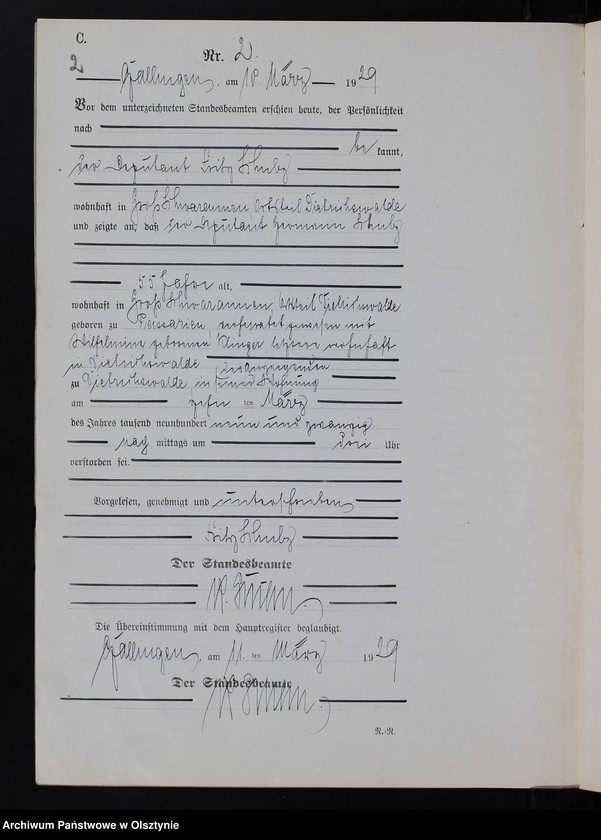 C.
Nr. 2.
2
Gallingen, am 10. März 1929
Vor dem unterzeichneten Standesbeamten erschien heute, der Persönlichkeit
nach
bekannt,
der Deputant Fritz
wohnhaft in Groß Schwaraunen Ortsteil Dietrichswalde
und zeigte an, daß der Deputant Hermann
55 Jahre alt,
wohnhaft in Groß Schwaraunen, Ortsteil Dietrichswalde
geboren zu verheiratet gewesen mit
Wilhelmine geborenen Klinger letztere wohnhaft
in Dietrichswalde
zu Dietrichswalde, in seiner Wohnung
am zehn ten März
des Jahres tausend neunhundert neun und zwanzig
nach mittags um drei Uhr
verstorben sei.
Vorgelesen, genehmigt und unterschrieben
Fritz
Der Standesbeamte
Die Übereinstimmung mit dem Hauptregister beglaubigt.
Gallingen, am 11. ten März 1929
Der Standesbeamte
N.-R.
Archiwum Państwowe w Olsztynie